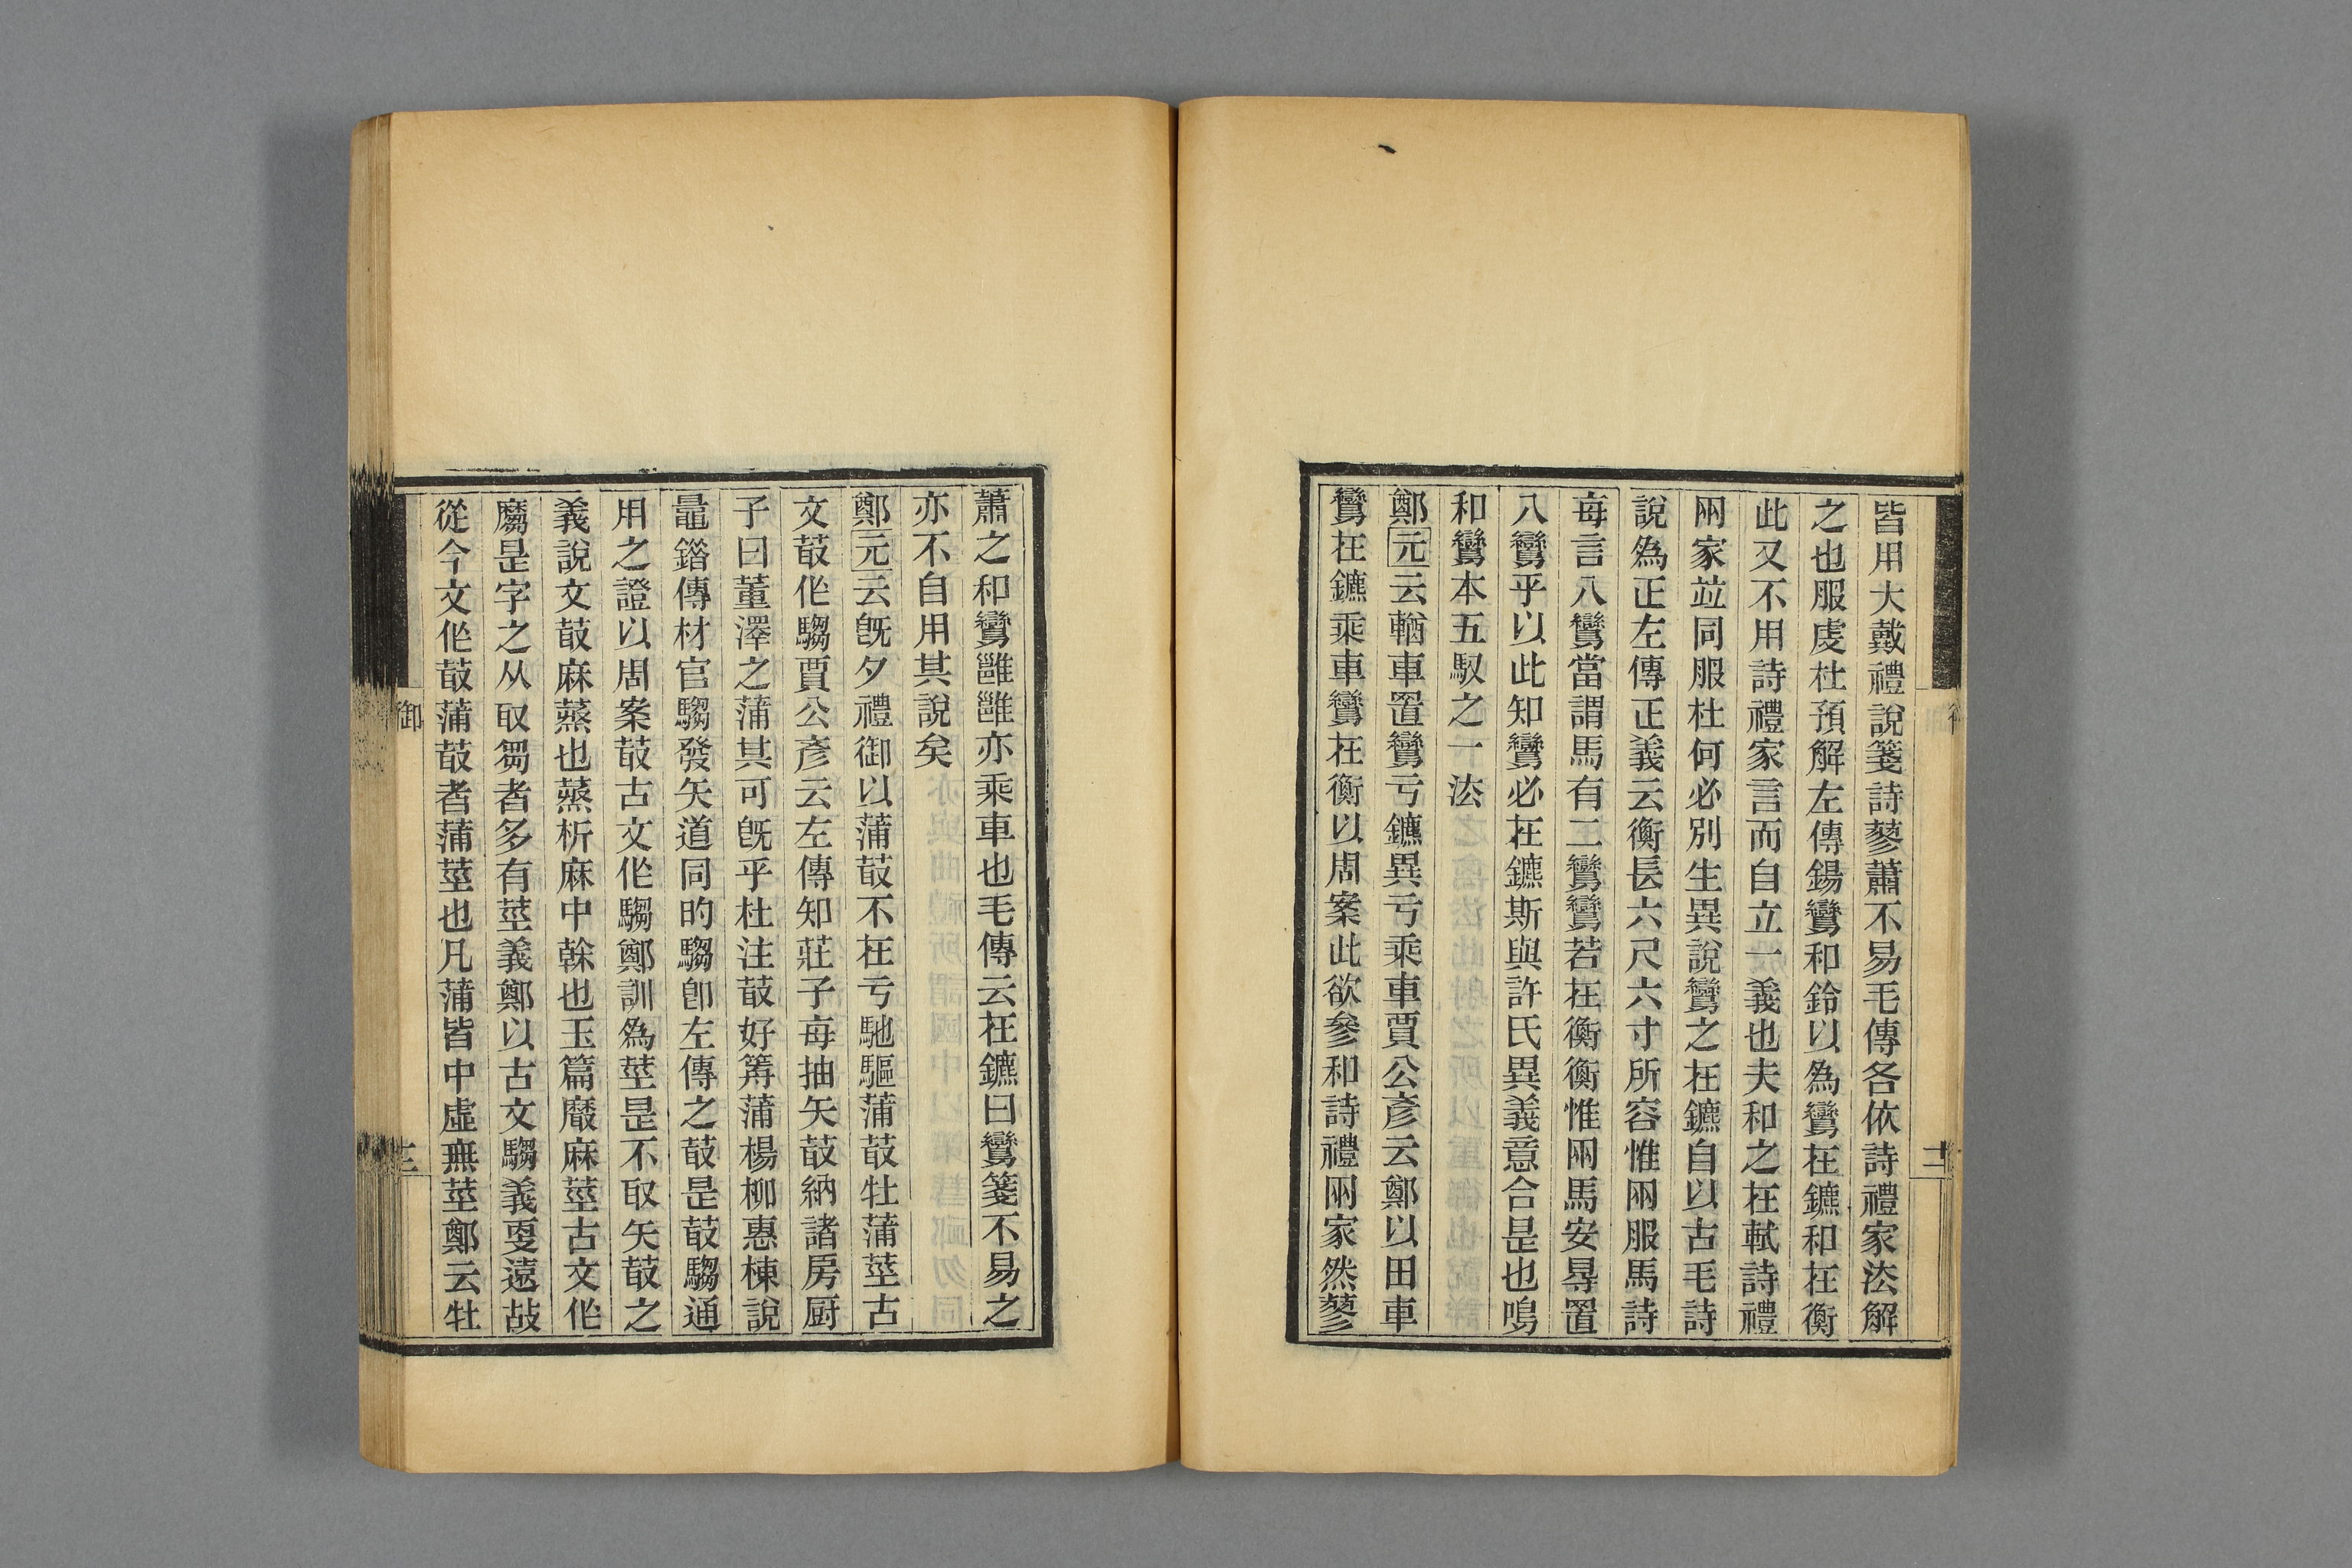 皆用大戴禮說箋詩蓼蕭不易毛傳各依詩禮家法解
之也服虔杜預解左傳鍚鸞和鈴以為鸞在鑣和在衡
此又不用詩禮家言而自立一義也夫和之在軾詩禮
兩家竝同服杜何必別生異說鸞之在鑣自以古毛詩
說為正左傳正義云衡長六尺六寸所容惟兩服馬詩
每言八鸞當謂馬有二鸞鸞若在衡衡惟兩馬安㝵置
八鸞乎以此知鸞必在鑣斯與許氏異義意合是也鳴
和鸞本五馭之一法
鄭元云輶車置鸞亏鑣異亏乘車賈公彥云鄭以田車
鸞在鑣乘車鸞在衡以周案此欲參和詩禮兩家然蓼
十二
蕭之和鸞雝雝亦乘車也毛傳云在鑣曰鸞箋不易之
亦不自用其說矣
鄭元云旣夕禮御以蒲菆不在亏馳驅蒲菆牡蒲莖古
文菆作騶賈公彥云左傳知莊子每抽矢菆納諸房廚
子曰董澤之蒲其可旣乎杜注菆好箭蒲楊柳惠棟說
鼂錯傳材官騶發矢道同的騶卽左傳之菆是菆騶通
用之證以周案菆古文作騶鄭訓為莖是不取矢菆之
義說文菆麻蒸也蒸析麻中榦也玉篇黀麻莖古文作
廲是字之从取芻者多有莖義鄭以古文騶義更遠故
從今文作菆蒲菆者蒲莖也凡蒲皆中虛無莖鄭云牡
御
十三